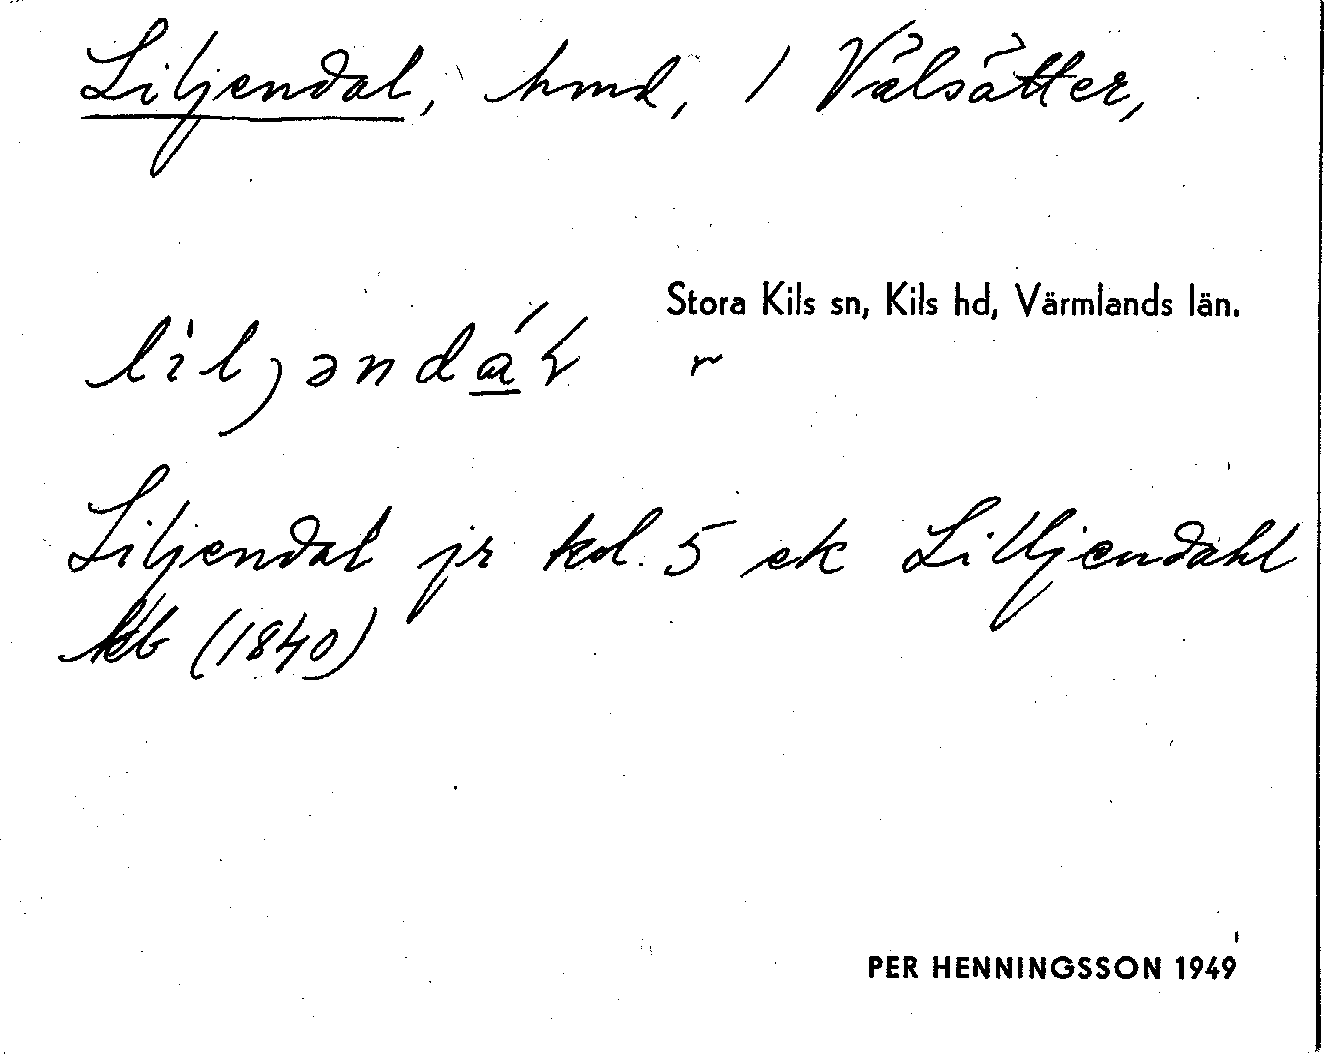 Liljendal, hmd, 1 Välsätter,
Stora Kils sn, Kils hd, Värmlands län.
lìljəndá̱ɽ ~
Liljendal jr kol. 5 ek Lilljendahl
kb (1840)
PER HENNINGSSON 1949